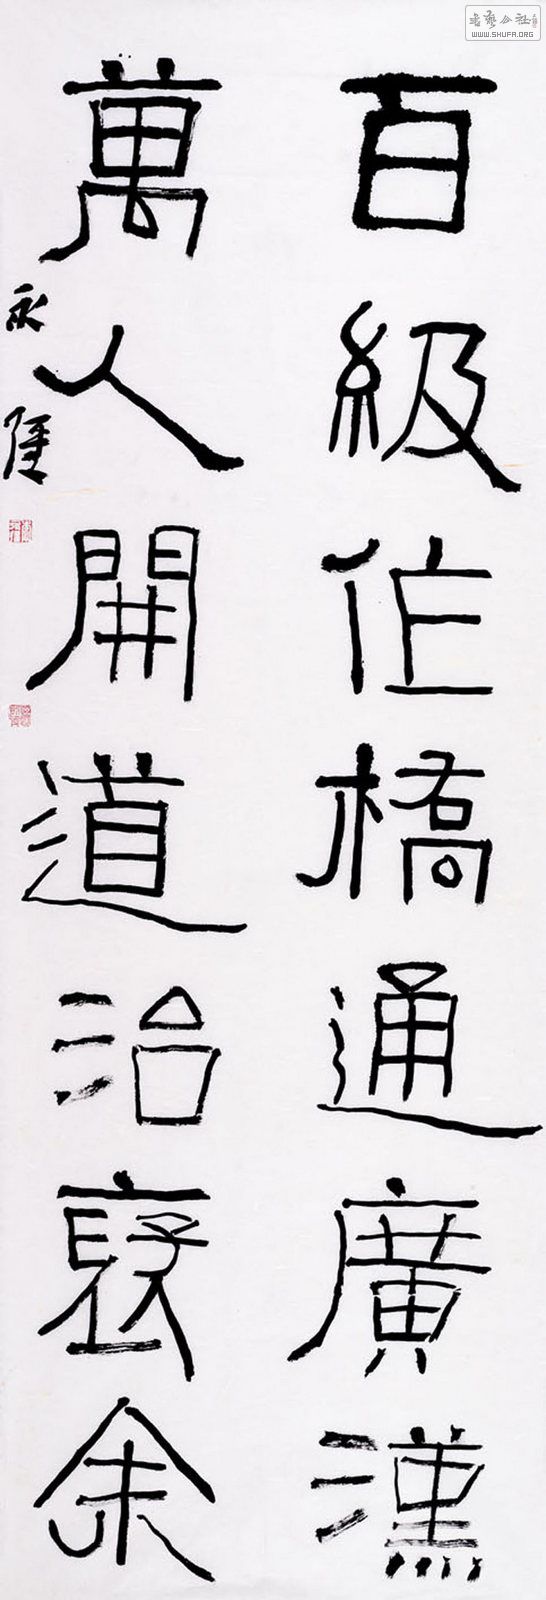 百級作橋通廣漢
萬人開道治褒余
永
書藝公社
WWW.SHUFA.ORG